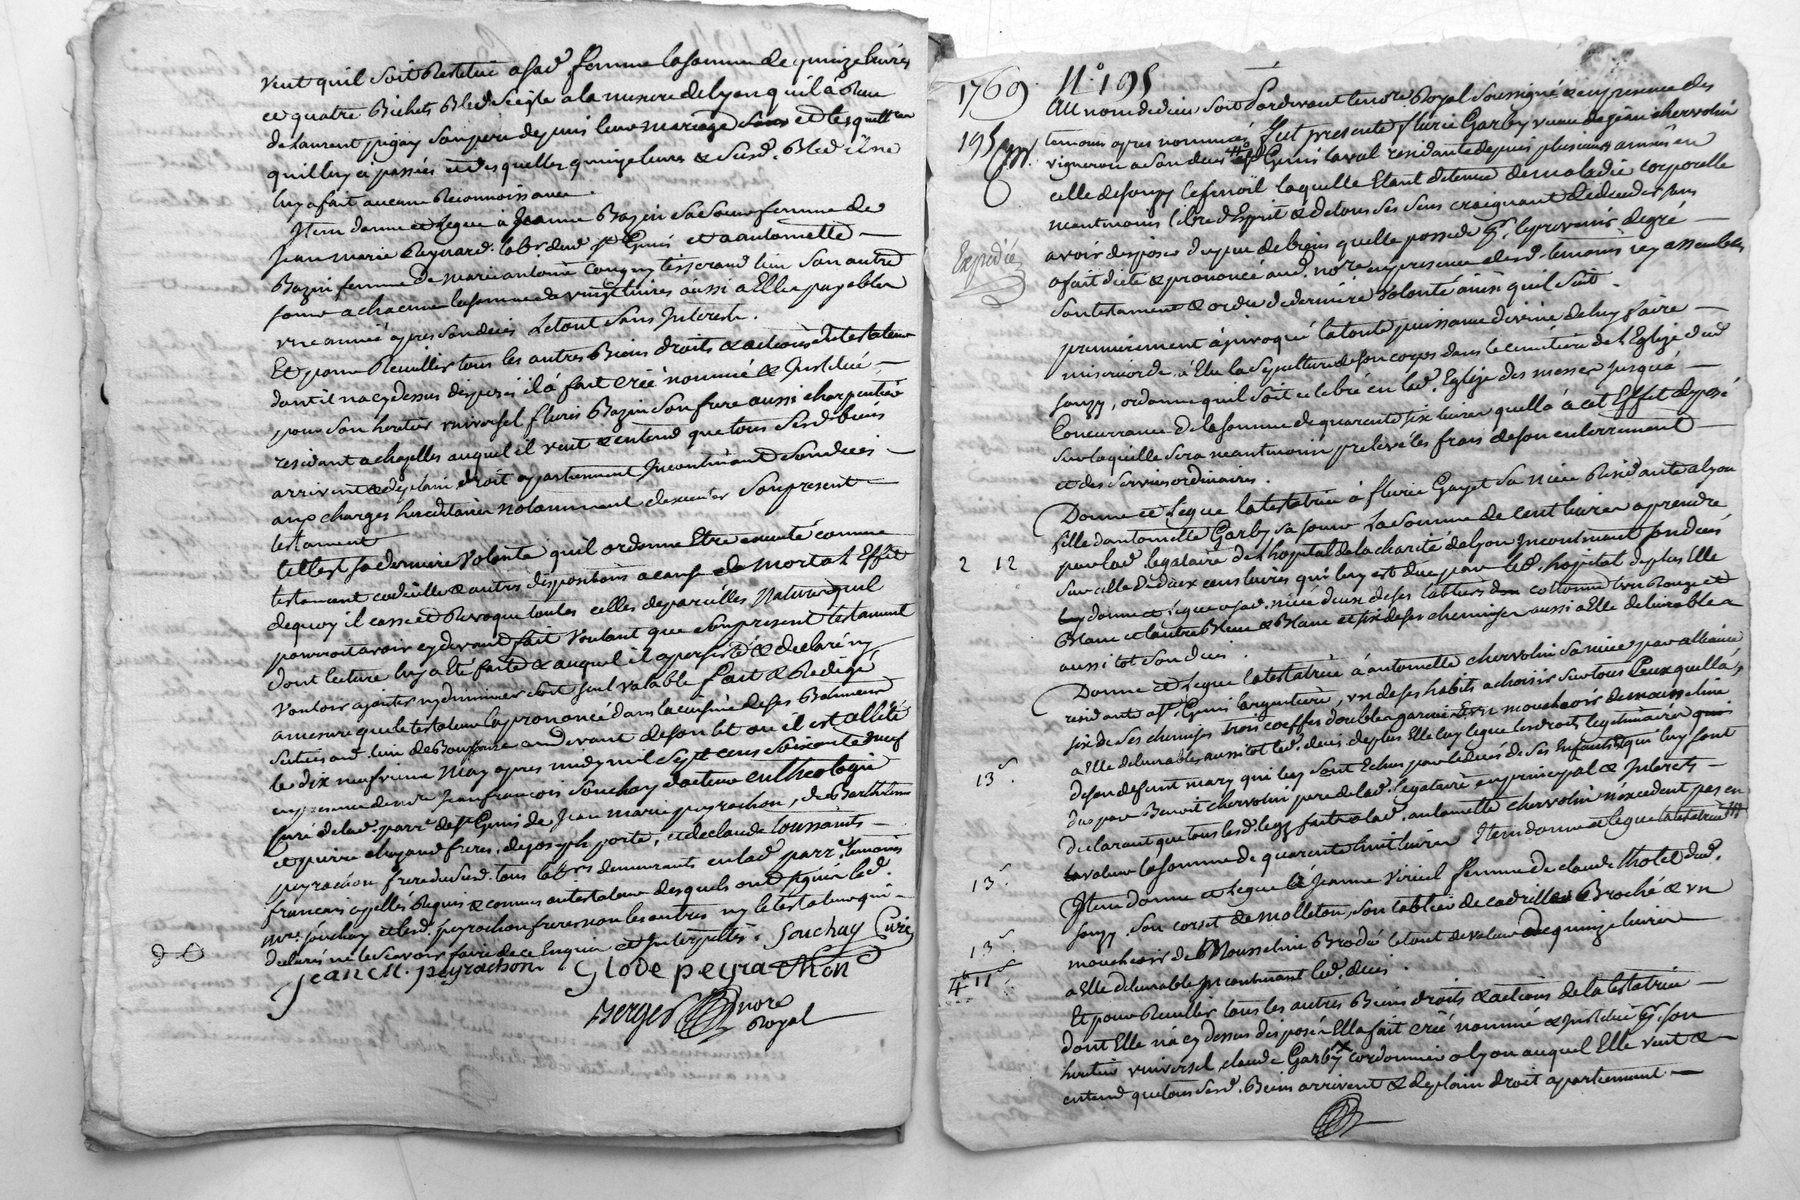 veut quil soit Restitué a sad. femme la somme de quinze livres
et quatre Bichets Bled seigle a la mesure de lyon quil a Reçu
de Laurent pigay son pere depuis leur mariage et lesquell
quil luy a passées et desquelles quinze livres & susd. Bled il ne
luy a fait aucune Reconnoissance.
Item donne et Legue à Jeanne Bazin sa soeur femme de
Jean marie Raynard lab.r dud. st Genis et a antoinette
Bazin femme de marie antoine tisserand son autre
soeur a chacune la somme de vingt livres aussi a Elles payables
une année apres son deces Letout sans Interest.
Et pour Recuillir tous les autres Biens droits & actions dutestateur
dont il na cydessus disposés il a fait créé nommé & Institué
pour son heritier universel fleurie Bazin son frere aussi charpentier
residant a chazelles auquel il veut & entend que tous sesd. biens
arrivent & de plein droit appartiennent Incontinant son deces
aux charges hereditaires notamment dexecuter son present
testament
telle est sa derniere volonté quil ordonne Etre executé comme
testament codicille & autres dispositions a cause de mort a l'Effet
dequoy il casse et Revoque toutes celles de pareilles Natures quil
pourroit avoir cy devant fait voulant que son present testament
dont lecture luy a été faite & auquel il a persisté & declaré ny
vouloir ajouter ny diminuer soit seul valable fait & Redigé
a mesure que le testateur la prononcé dans la cuisine de ses Batiments
scitués aud. lieu de au devant de son lit ou il est allité
le dix neufvieme May apres midy mil sept cens soixante neuf
en presence de m.re Jean francois Souchay docteur en theologie
Curé de lad. parr. de st Genis de Jean marie peyrachon, de Barthelemi
et pierre freres, de joseph porte, et de claude toussaints
peyrachon frere dususd. tous lab.rs demeurants en lad. parr. temoins
francois appellés Requis & connus au testateur desquels ont signé led.
m.re souchay et lesd. peyrachon freres non les autres ny le testateur qui
declarés ne le scavoir faire de ce Enquis et Interpellés. Souchay Curé
Jean M. peyrachon Glode peyrachon
Berger nore
Royal
1769 N.o 195
Au nom de dieu soit Pardevant le no.re Royal soussigné & en presence des
temoins apres nommés fut presente fleurie Garby veuve de jean chervolin
195
vigneron a son deces st Genis laval residante depuis plusieurs années en
celle de souzy laquelle Etant detenue de maladie corporelle
neantmoins libre d'Esprit & de tous ses sens craignant de deceder sans
avoir disposé du peu de biens quelle possede cy. de gré
Expedié
a fait dicté & prononcé aud. no.re en presence desd. temoins icy assemblés
son testament & ordre de derniere volonté ainsi quil suit.
premierement a invoqué la toute puissance divine de luy faire
misericorde, a Elu la sepulture de son corps dans le cimetiere de l'Eglise dud.
souzy, ordonne quil soit celebré en lad. Eglise des messes jusqu'a
Concurrance de la somme de quarente six livres quella à cet Effet deposé
sur laquelle sera neantmoins prelevé les frais de son enterrement
et des services ordinaires.
Donne et Legue la testatrice à fleurie Gayet sa niece Residante a lyon
fille dantoinette Garby sa soeur La somme de Cent livres aprendre
par lad. legataire de l'hopital de la charité de lyon Incontinent son deces
2 12
sur celle de deux cens livres qui luy est due par led. hopital de plus Elle
donne et Legue a sad. niece deux de ses tabliers cottonne l'un Rouge et
Blanc et l'autre Bleu & Blanc et six de ses chemises aussi a Elle delivrables
aussi tot son deces.
Donne et Legue la testatrice à antoinette chervolin sa niece par alliance
residante a st Genis l'argentiere, un de ses habits a choisir sur tous Ceux quella,
six de ses chemises trois coeffes doubles garnies Et un mouchoir de mousseline
a Elle delivrables aussitot led. deces de plus Elle luy legue les droits legitimaires
13
de son defunt mary qui luy sont Echus par le deces de ses Enfants & qui luy sont
dus par Benoit chervolin pere de lad. legataire en principal & Interets
declarant que tous lesd. legs faits a lad. antoinette chervolin nexcedent pas en
valeur la somme de quarente huit livres Item donne et legue la testatrice
13
Item donne et Legue à Jeanne Viricel femme de claude tholet dud.
souzy, son corset de molleton, son tablier de cadrillés Broché & un
13
mouchoir de Mousseline Brodé letout de valeur de quinze livres
4 11
a Elle delivrable Incontinant led. deces.
Et pour Recuillir tous les autres Biens droits & actions de la testatrice
dont Elle n'a cy dessus disposé Ella fait créé nommé & Institué p. son
heritier universel, claude Garby cordonnier a lyon auquel Elle veut &
entend que tous sesd. Biens arrivent & de plain droit appartiennent